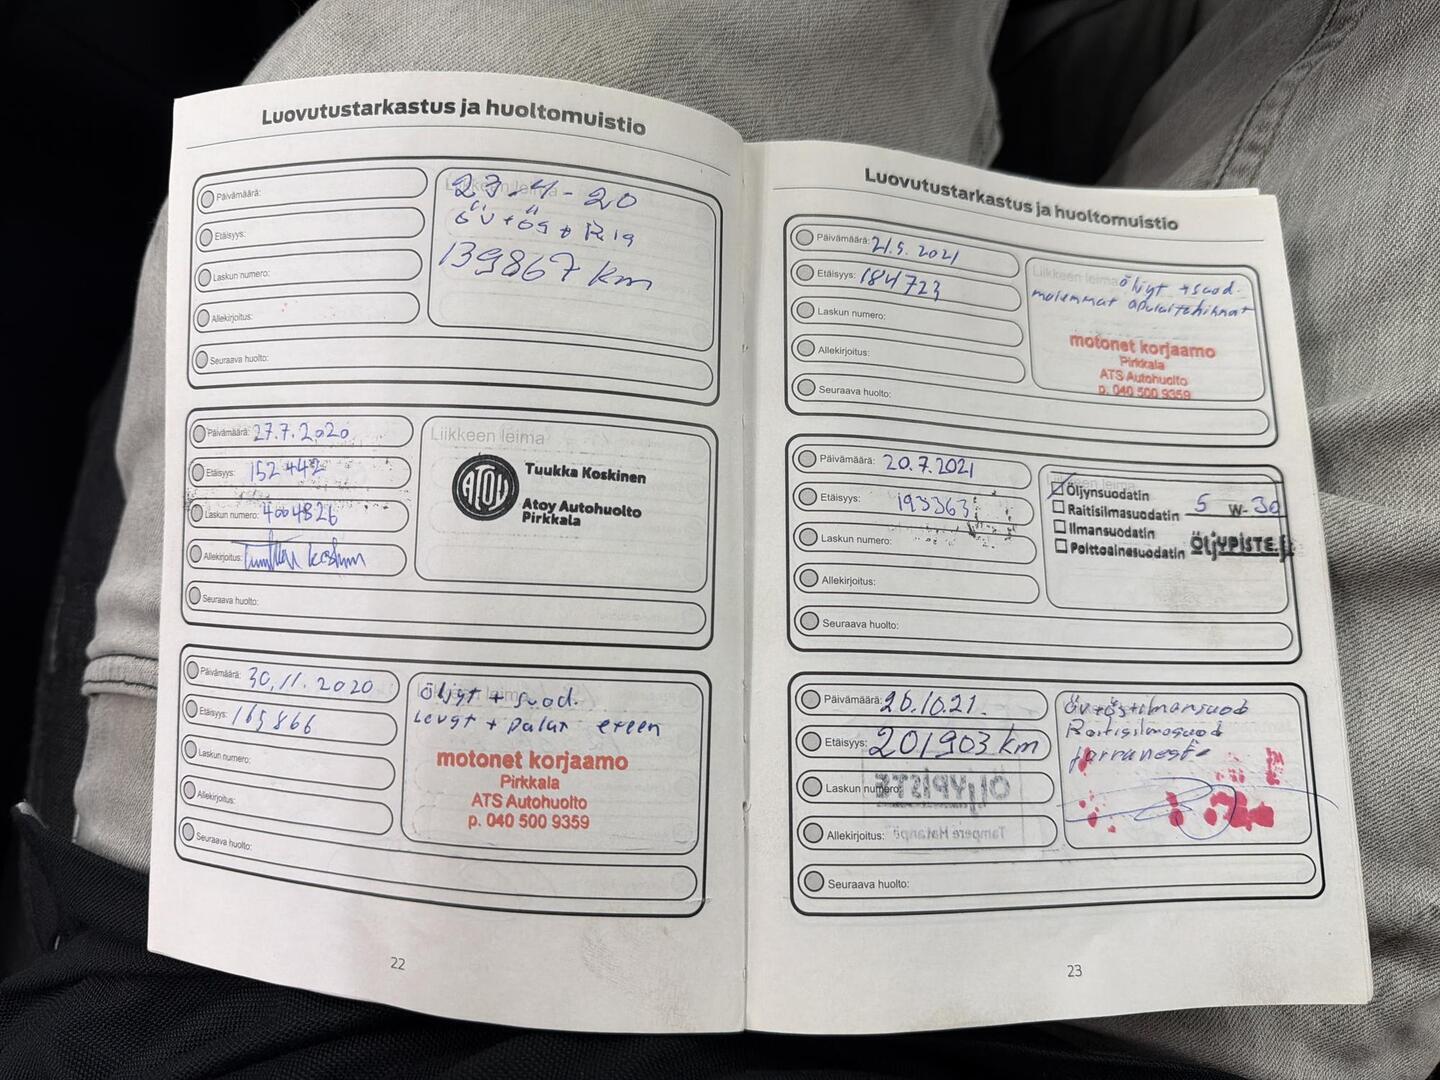 Luovutustarkastus ja huoltomuistio
Päivämäärä:
Etäisyys:
Laskun numero:
Allekirjoitus:
Seuraava huolto:
Liikkeen leima
23-4-20
öv + ös + Rig
139867 km
Päivämäärä: 27.7.2020
Etäisyys: 152442
Laskun numero: 4004826
Allekirjoitus:
Seuraava huolto:
Liikkeen leima
ATOY
Tuukka Koskinen
Atoy Autohuolto
Pirkkala
Päivämäärä: 30.11.2020
Etäisyys: 165866
Laskun numero:
Allekirjoitus:
Seuraava huolto:
Liikkeen leima
Öljyt + suod.
Levyt + palat eteen
motonet korjaamo
Pirkkala
ATS Autohuolto
p. 040 500 9359
22
Luovutustarkastus ja huoltomuistio
Päivämäärä: 21.5.2021
Etäisyys: 184723
Laskun numero:
Allekirjoitus:
Seuraava huolto:
Liikkeen leima
Öljyt + suod.
molemmat apulaitehihnat
motonet korjaamo
Pirkkala
ATS Autohuolto
p. 040 500 9359
Päivämäärä: 20.7.2021
Etäisyys: 193363
Laskun numero:
Allekirjoitus:
Seuraava huolto:
Öljynsuodatin
Raitisilmasuodatin
Ilmansuodatin
Polttoainesuodatin
5 W-30
ÖLJYPISTE.fi
Päivämäärä: 26.10.21
Etäisyys: 201903 km
Laskun numero:
Allekirjoitus:
Seuraava huolto:
öv+ös+ilmansuod
Raitisilmasuod
Jarruneste
23